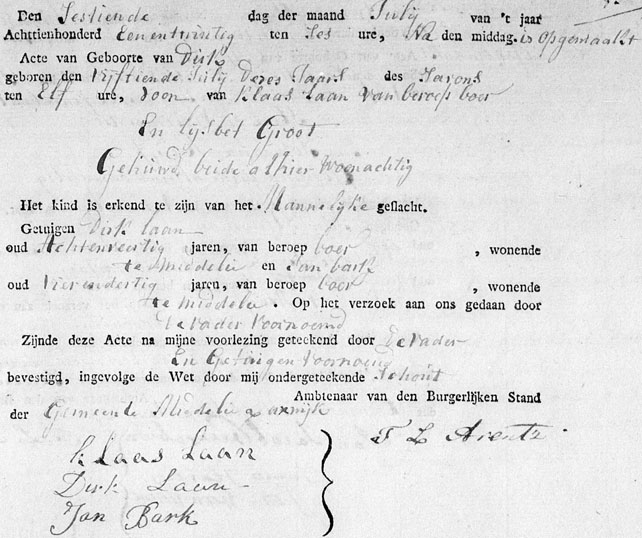 Den Sestiende dag der maand July van 't jaar
Achttienhonderd Eenentwintig ten Ses ure, Na den middag. is Opgemaakt
Acte van Geboorte van Dirk
geboren den Vyftiende July Deses Jaars des Savons
ten Elf ure, Soon van Klaas Laan van beroep boer
En Lysbet Groot
Gehuwd beide alhier Woonachtig
Het kind is erkend te zijn van het Mannelyke geslacht.
Getuigen Dirk laan
oud Achtenveertig jaren, van beroep boer , wonende
te Middelie en Jan bark
oud Vierendertig jaren, van beroep boer , wonende
te Middelie. Op het verzoek aan ons gedaan door
De vader Voornoemd
Zijnde deze Acte na mijne voorlezing geteekend door De Vader
En Getuigen Voornoemd
bevestigd, ingevolge de Wet door mij ondergeteekende Schout
Ambtenaar van den Burgerlijken Stand
der Gemeente Middelie
Klaas Laan
Dirk Laan
Jan Bark